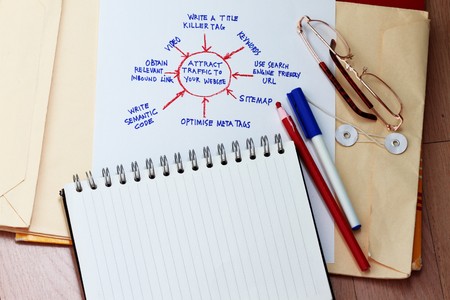 WRITE A TITLE
KILLER TAG
VIDEO
KEYWORDS
OBTAIN
RELEVANT
INBOUND LINK
ATTRACT
TRAFFIC TO
YOUR WEBSITE
USE SEARCH
ENGINE FRIENDLY
URL
WRITE
SEMANTIC
CODE
SITEMAP
OPTIMISE META TAGS